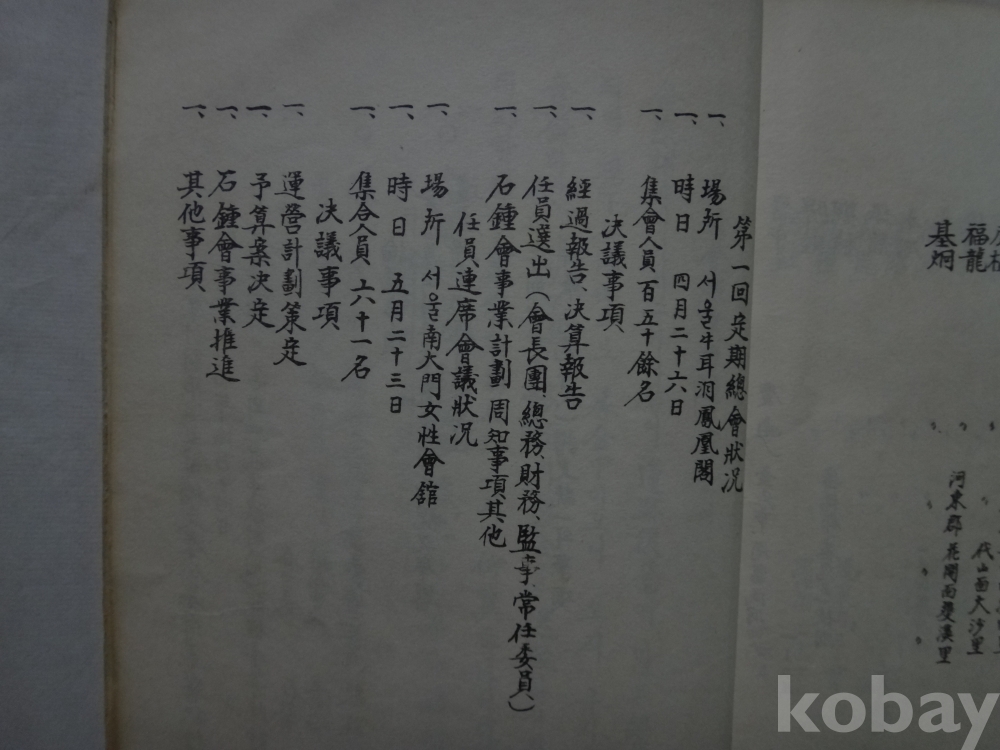 福龍
基炯
河東郡花開面雙溪里
代山面大沙里
第一回定期總會狀況
一、場所 서울牛耳洞鳳凰閣
一、時日 四月二十六日
一、集會人員百五十餘名
決議事項
一、經過報告、決算報告
一、任員選出(會長團、總務、財務、監事、常任委員)
一、石鍾會事業計劃周知事項其他
任員連席會議狀況
一、場所 서울南大門女性會舘
一、時日 五月二十三日
一、集合人員 六十一名
決議事項
一、運營計劃策定
一、予算案決定
一、石鍾會事業推進
一、其他事項
kobay